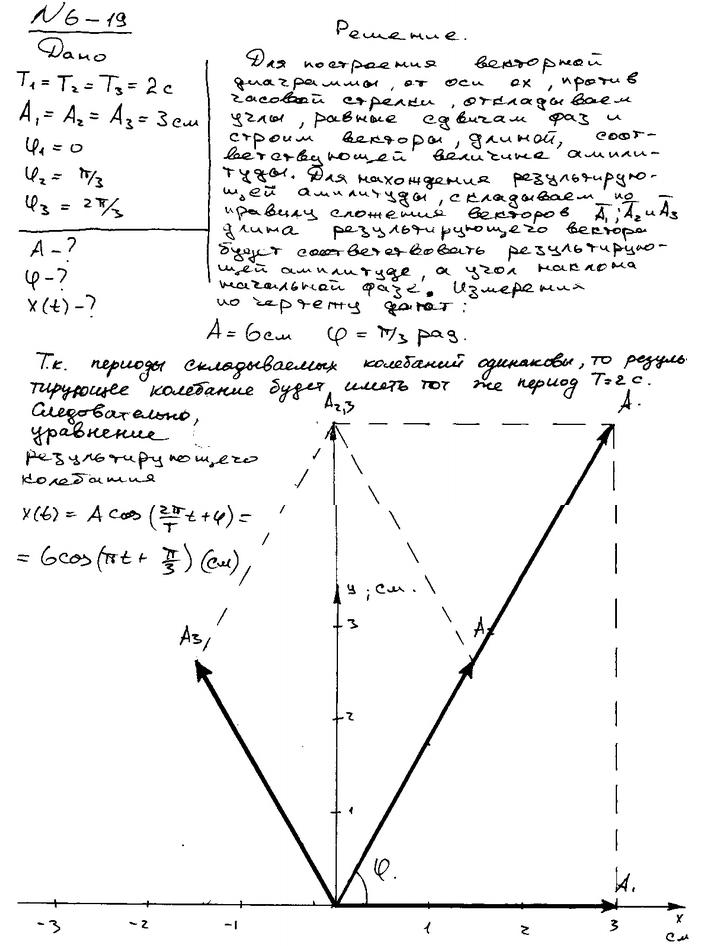 N 6-19
Дано
T₁ = T₂ = T₃ = 2 с
A₁ = A₂ = A₃ = 3 см
φ₁ = 0
φ₂ = π/3
φ₃ = 2π/3
A - ?
φ - ?
x(t) - ?
Решение.
Для построения векторной
диаграммы, от оси ox, против
часовой стрелки, откладываем
углы, равные сдвигам фаз и
строим векторы, длиной, соот-
ветствующей величине ампли-
туды. Для нахождения результирую-
щей амплитуды, складываем по
правилу сложения векторов A̅₁; A̅₂ и A̅₃
длина результирующего вектора
будет соответствовать результирую-
щей амплитуде, а угол наклона
начальной фазе. Измерения
по чертежу дают:
A = 6 см φ = π/3 рад.
Т.к. периоды складываемых колебаний одинаковы, то резуль-
тирующее колебание будет иметь тот же период T = 2 с.
Следовательно,
уравнение
результирующего
колебания
x(t) = A cos (2π/T t + φ) =
= 6 cos (πt + π/3) (см)
A₂,₃
A.
y, см.
3
A₃
A₂
2
1
φ.
A₁
-3 -2 -1 1 2 3 x
см